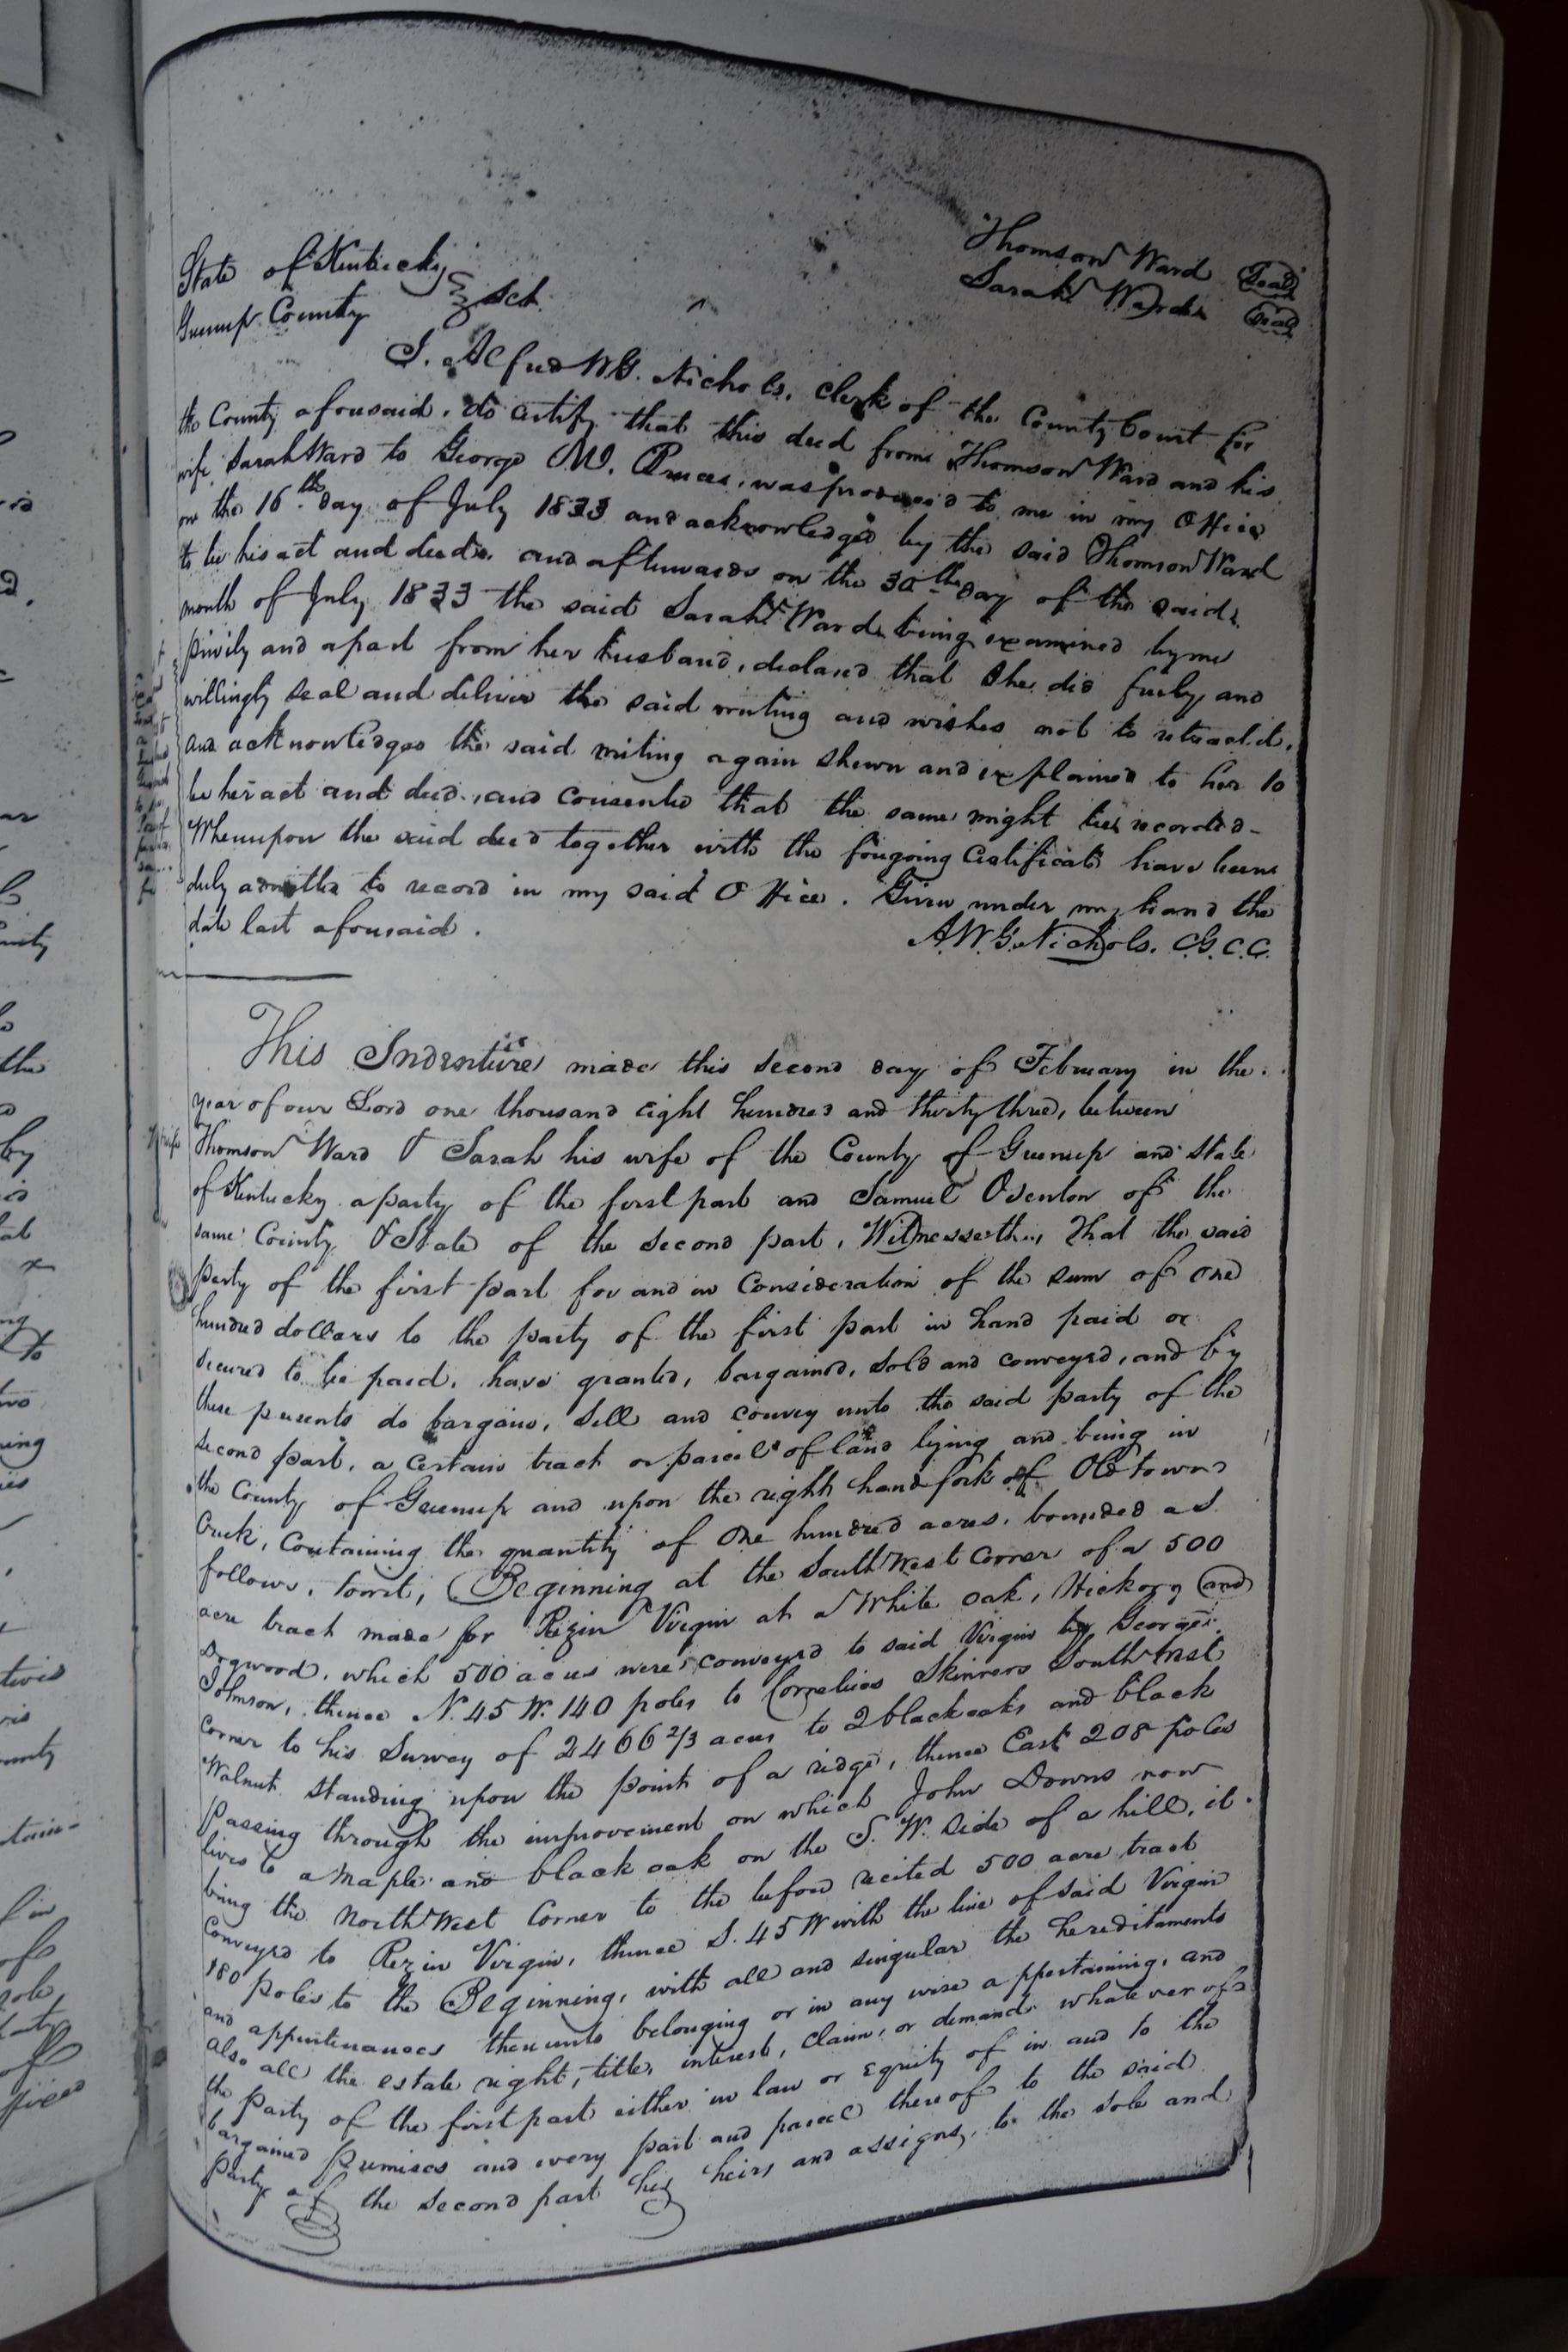 Thomson Ward (Seal)
Sarah Ward (Seal)
State of Kentucky
Greenup County } Sct.
I. Alfred W. G. Nichols, clerk of the County Court for
the County aforesaid, do certify that this deed from Thomson Ward and his
wife Sarah Ward to George M. was produced to me in my Office
on the 16th day of July 1833 and acknowledged by the said Thomson Ward
to be his act and deed. and afterwards on the 30th day of the said
month of July 1833 the said Sarah Ward being examined by me
privily and apart from her husband, declared that she did freely and
willingly seal and deliver the said writing and wishes not to retract it,
and acknowledges the said writing again shewn and explained to her to
be her act and deed, and consented that the same might be recorded -
Whereupon the said deed together with the foregoing Certificate have been
duly admitted to record in my said Office. Given under my hand the
date last aforesaid.
A.W.G. Nichols. C.G.C.C.
This Indenture made this second day of February in the
year of our Lord one thousand eight hundred and thirty three, between
Thomson Ward & Sarah his wife of the County of Greenup and State
of Kentucky a party of the first part and Samuel Osenton of the
same County & State of the second part, Witnesseth, That the said
party of the first part for and in Consideration of the sum of one
hundred dollars to the party of the first part in hand paid or
secured to be paid, have granted, bargained, sold and conveyed, and by
these presents do bargain, sell and convey unto the said party of the
second part, a certain tract or parcel of land lying and being in
the County of Greenup and upon the right hand fork of Oldtown
Creek, Containing the quantity of One hundred acres, bounded as
follows, towit, Beginning at the South West Corner of a 500
acre tract made for Rezin Virgin at a White oak, Hickory and
Dogwood, which 500 acres were conveyed to said Virgin by George
Johnson, thence N. 45 W. 140 poles to Cornelius Skinners South East
corner to his Survey of 2466 2/3 acres to 2 black oaks and black
Walnut standing upon the point of a ridge, thence East 208 poles
Passing through the improvement on which John Downs now
lives to a Maple and black oak on the S. W. side of a hill, it
being the North West Corner to the before recited 500 acre tract
Conveyed to Rezin Virgin, thence S. 45 W with the line of said Virgin
180 poles to the Beginning, with all and singular the hereditaments
and appurtenances thereunto belonging or in any wise appertaining, and
also all the estate right, title, interest, claim, or demand whatever of
the Party of the first part either in law or Equity of in and to the
bargained premises and every part and parcel thereof to the said
Party of the second part his heirs and assigns, to the sole and